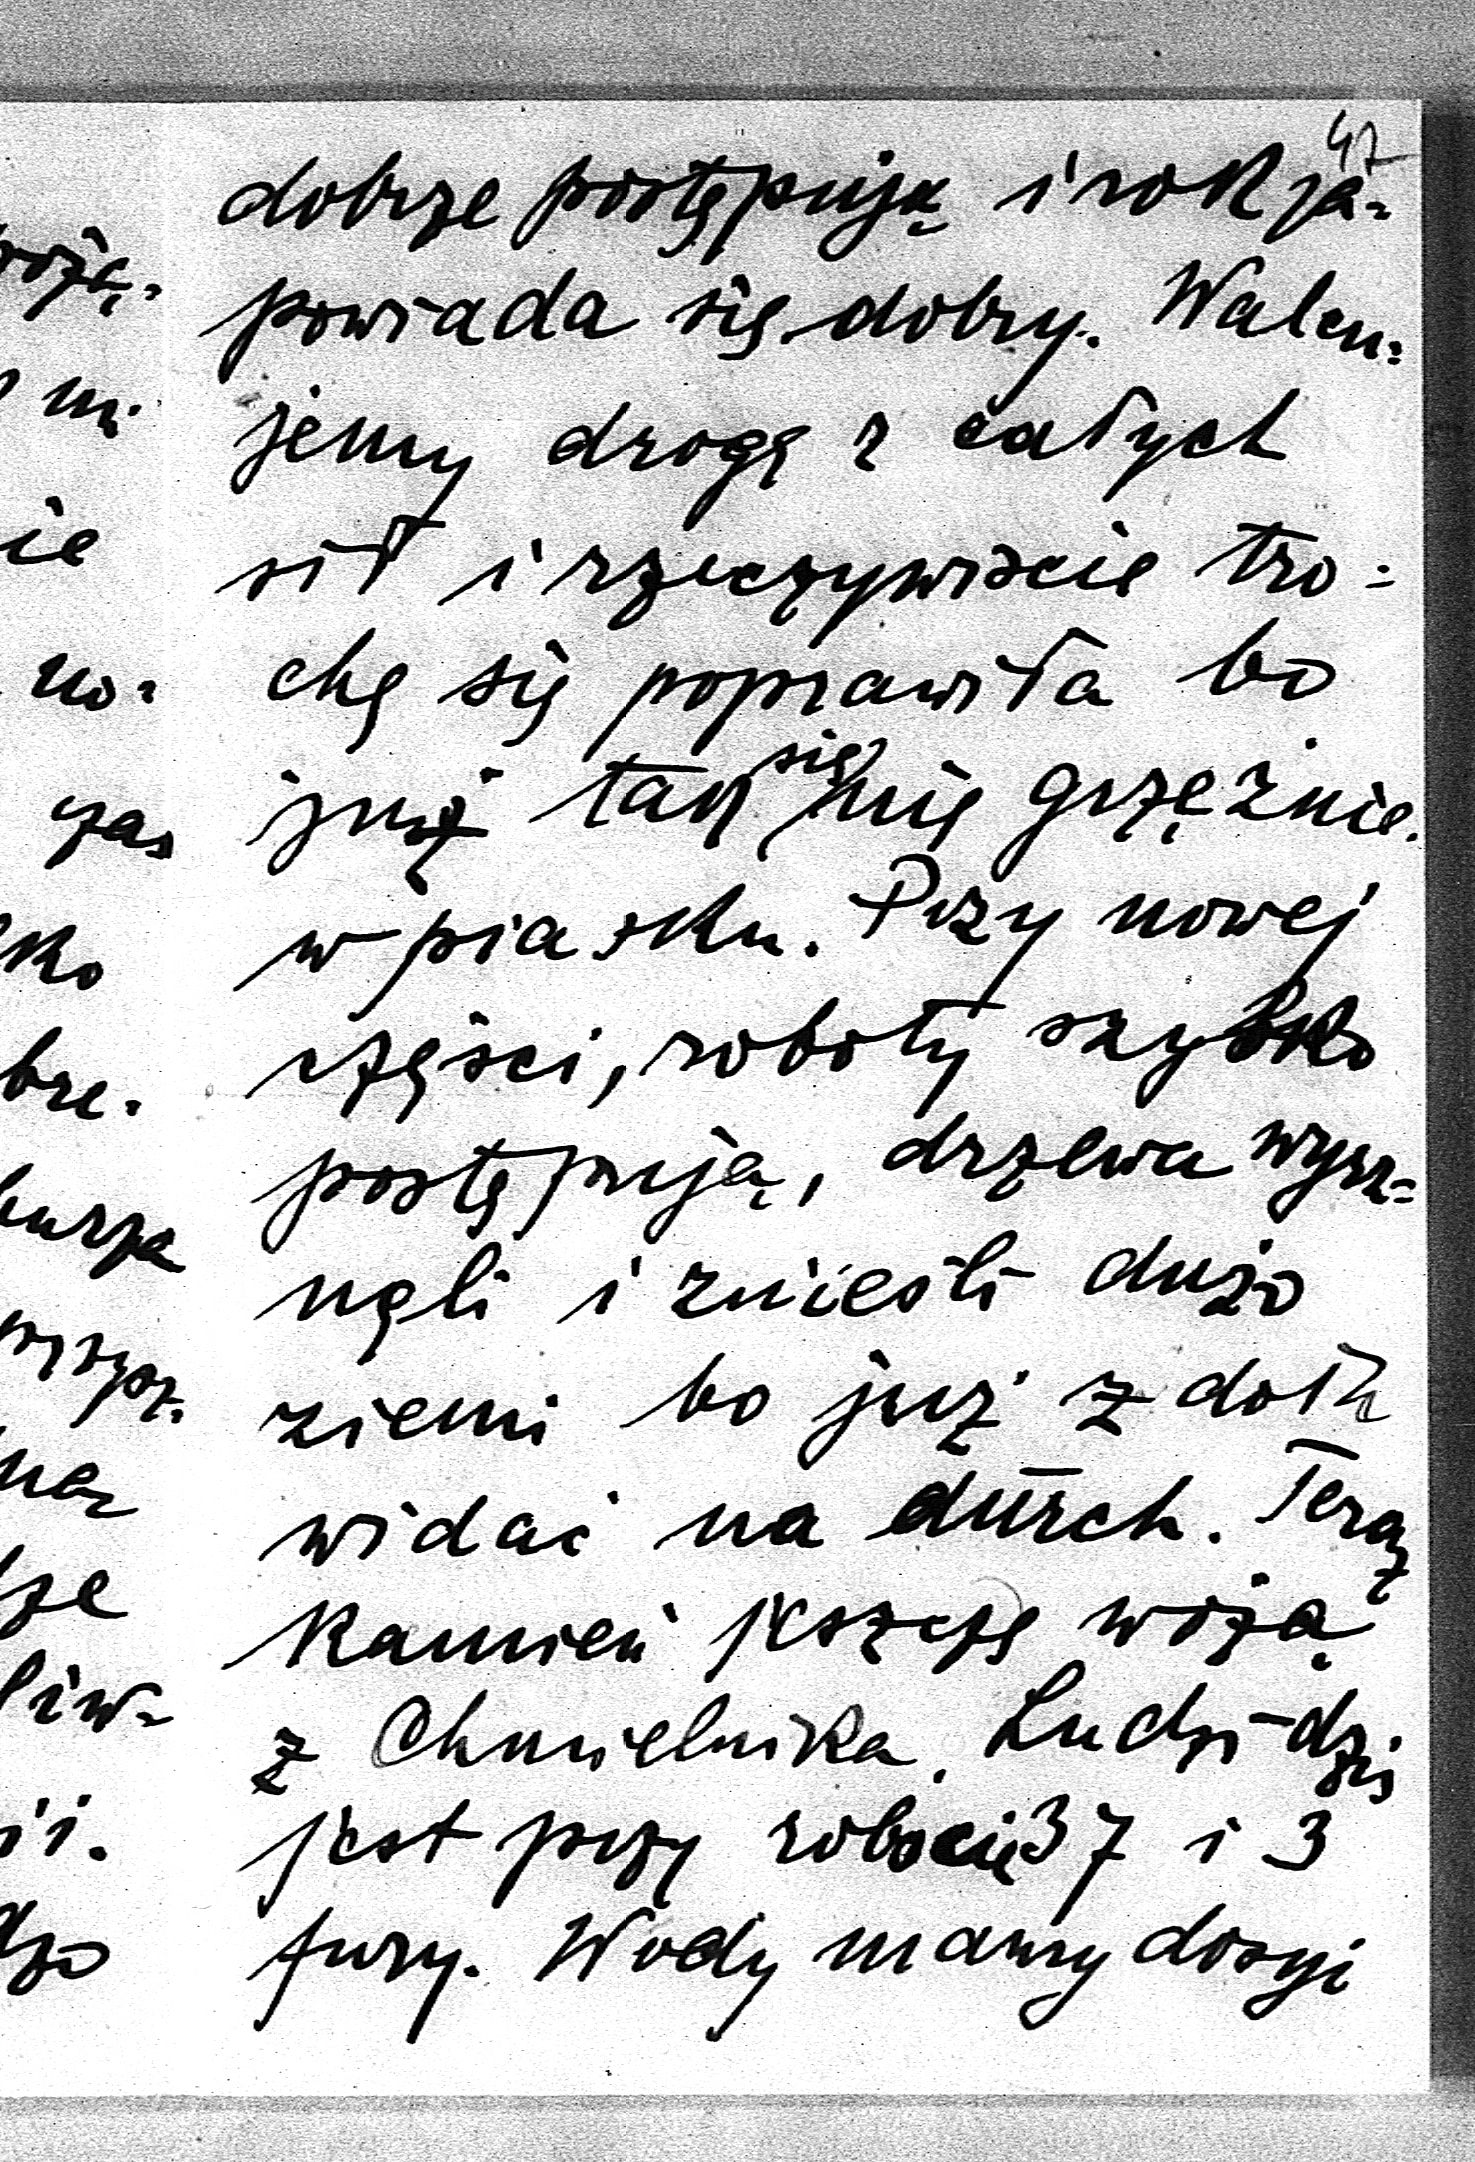 47
dobrze postępują i rok za=
powiada się dobry. Walcu=
jemy drogę z całych
sił i rzeczywiście tro=
chę się poprawiła bo
już tak się nie grzęźnie
w piasku. Przy nowej
części, roboty szybko
postępują, drzewa wyrz=
nęli i znieśli dużo
ziemi bo już z dołu
widać na durch. Teraz
kamień jeszcze wożą
z Chmielnika. Ludzi dziś
jest przy robocie 37 i 3
fury. Wody mamy dosyć
ie
no=
czas
ko
bze.
liw=